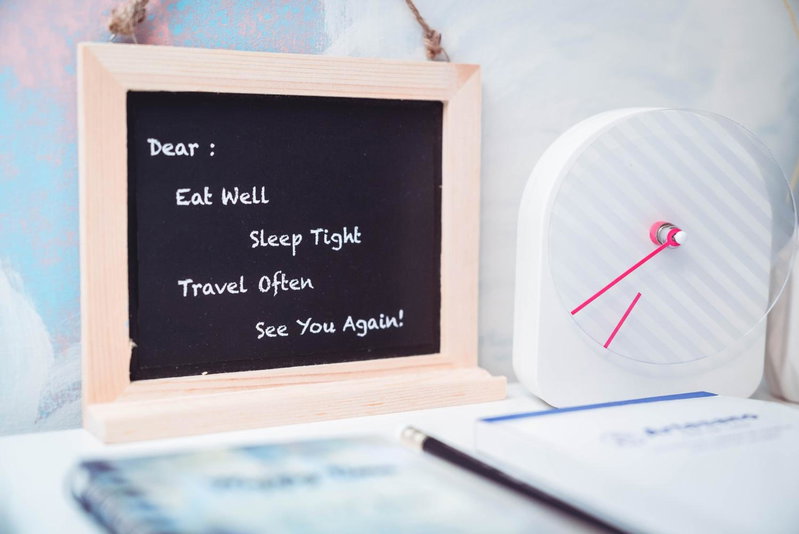 Dear :
Eat Well
Sleep Tight
Travel Often
See You Again!